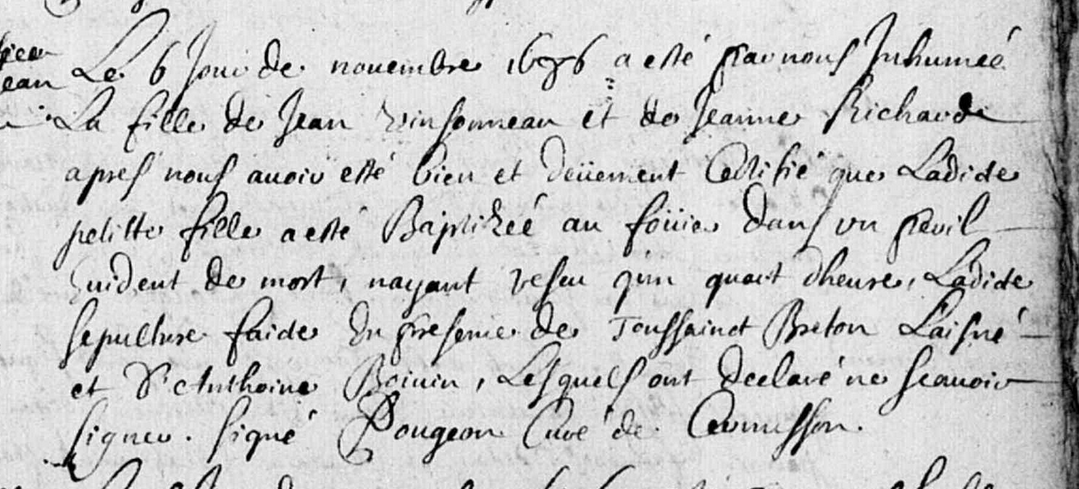 Le 6 Jour de novembre 1676 a esté par nous Inhumeé
La fille de Jean Vinsonneau et de Jeanne Richarde
apres nous avoir esté bien et deüement Certifié que Ladicte
petitte fille a esté Baptizéé au foüier dans un peril
Evident de mort, nayant vescu qun quart dheure, Ladicte
sepulture faicte En presence de Toussainct Breton Laisné
et D'Anthoine Boivin, Lesquels ont declaré ne scavoir
signer. signé Pougeon Curé de